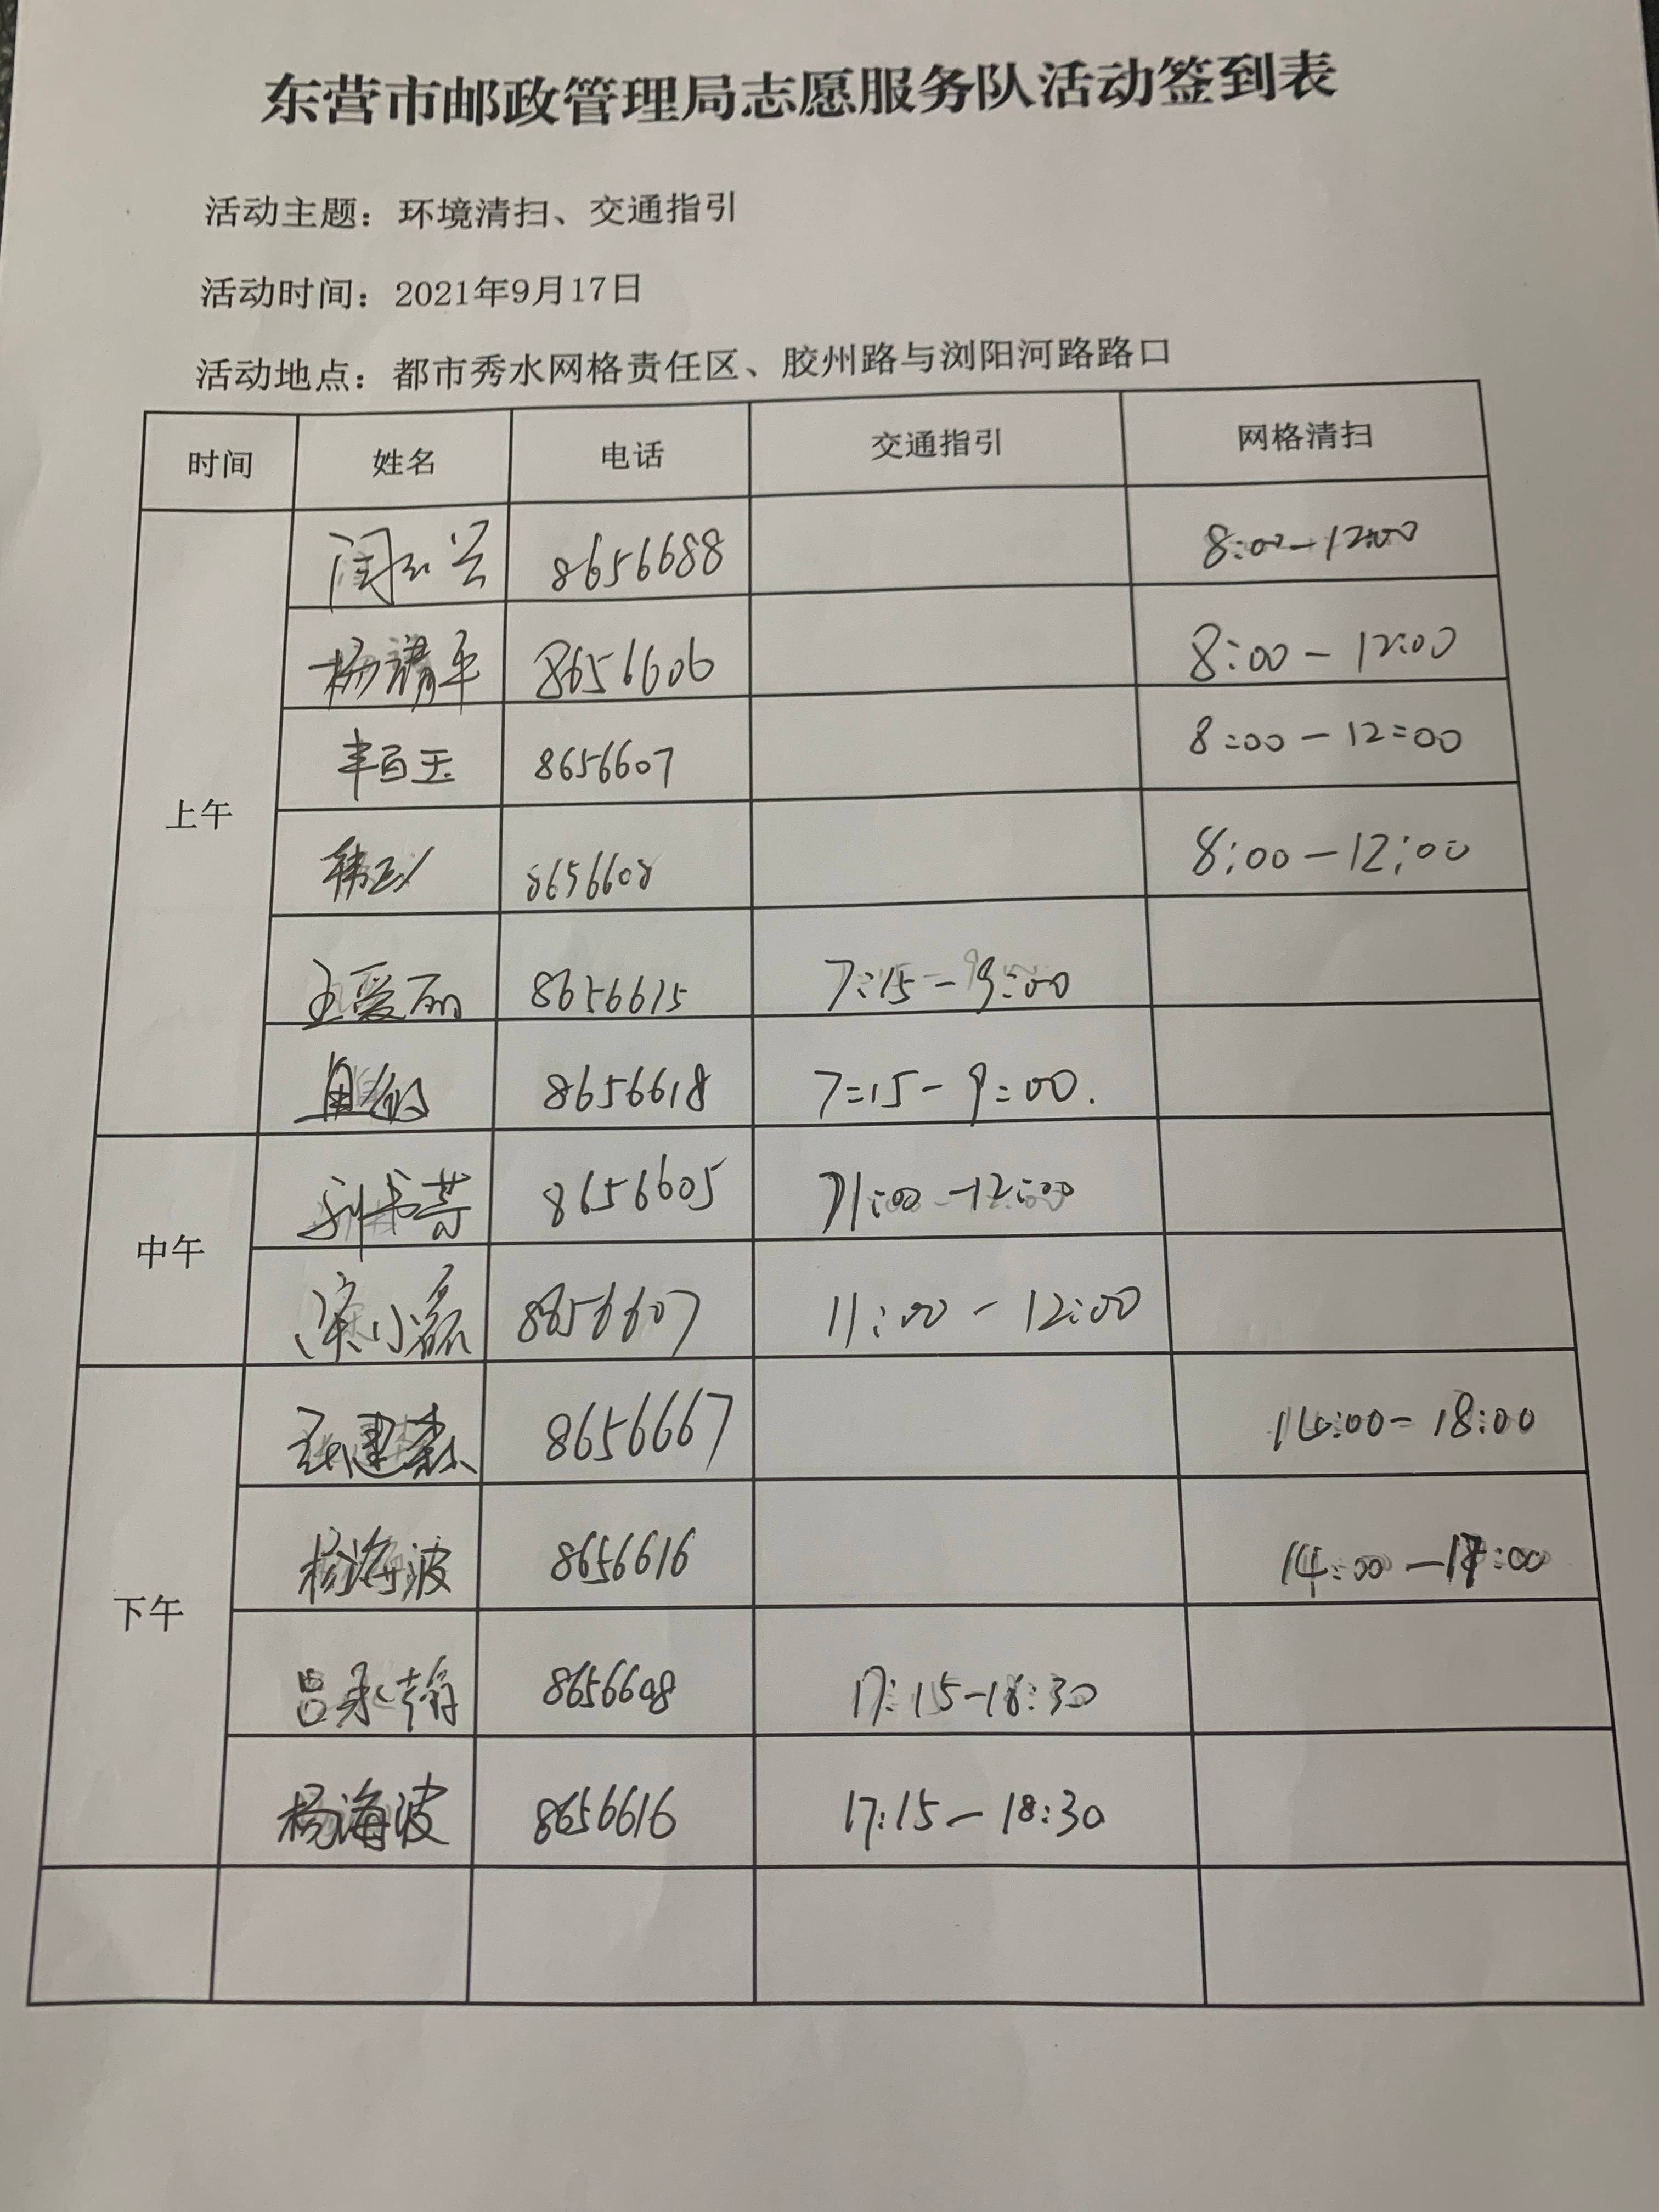 东营市邮政管理局志愿服务队活动签到表
活动主题：环境清扫、交通指引
活动时间：2021年9月17日
活动地点：都市秀水网格责任区、胶州路与浏阳河路路口
时间 姓名 电话 交通指引 网格清扫
上午
8656688 8:00-12:00
杨清平 8656606 8:00-12:00
丰百玉 8656607 8:00-12:00
8656608 8:00-12:00
王爱丽 8656615 7:15-9:00
8656618 7:15-9:00.
中午
刘书芳 8656605 11:00-12:00
小磊 8656607 11:00-12:00
下午
建森 8656667 14:00-18:00
杨海波 8656616 14:00-18:00
吕永翰 8656608 17:15-18:30
杨海波 8656616 17:15-18:30